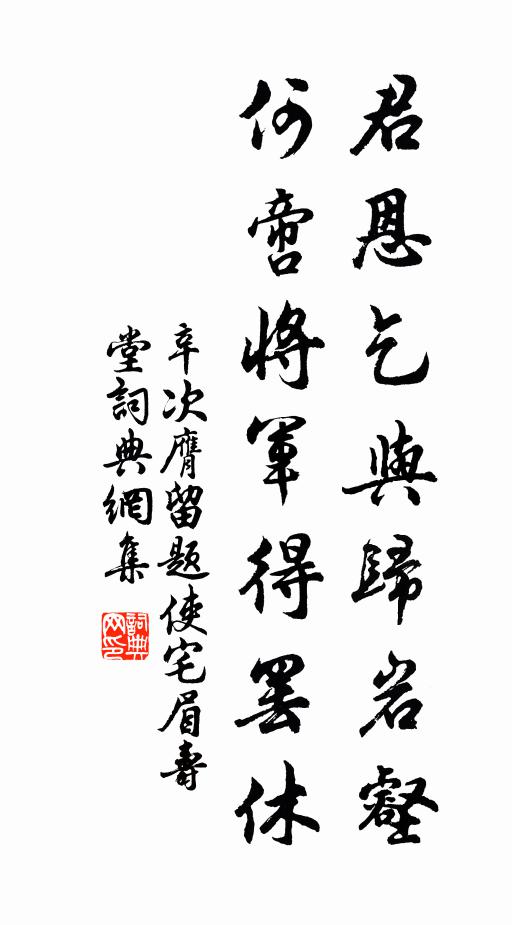 君恩乞與歸岩壑
何啻將軍得罷休
辛次膺留題使宅眉壽
堂詞典網集
詞典
网印